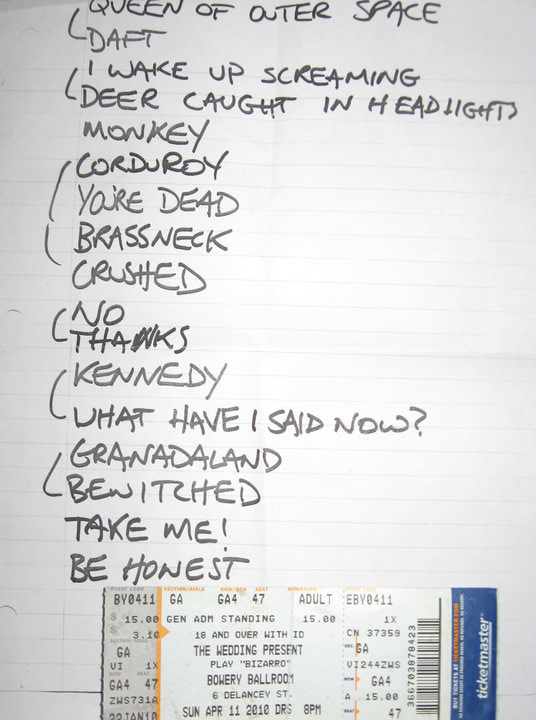 QUEEN OF OUTER SPACE
DAFT
I WAKE UP SCREAMING
DEER CAUGHT IN HEADLIGHTS
MONKEY
CORDUROY
YOU'RE DEAD
BRASSNECK
CRUSHED
NO
THANKS
KENNEDY
WHAT HAVE I SAID NOW?
GRANADALAND
BEWITCHED
TAKE ME!
BE HONEST
EVENT CODE SECTION/AISLE ROW/BOX SEAT ADMISSION
BY0411 GA GA4 47 ADULT EBY0411
$ 15.00 GEN ADM STANDING 15.00 1X
3.10 18 AND OVER WITH ID CN 37359
GA THE WEDDING PRESENT GA
VI 1X PLAY "BIZARRO" VI244ZWS
GA4 47 BOWERY BALLROOM GA4
ZWS731A 6 DELANCEY ST. A 15.00
22JAN10 SUN APR 11 2010 DRS 8PM 47
366703878423
BUY TICKETS AT TICKETMASTER.COM
ticketmaster